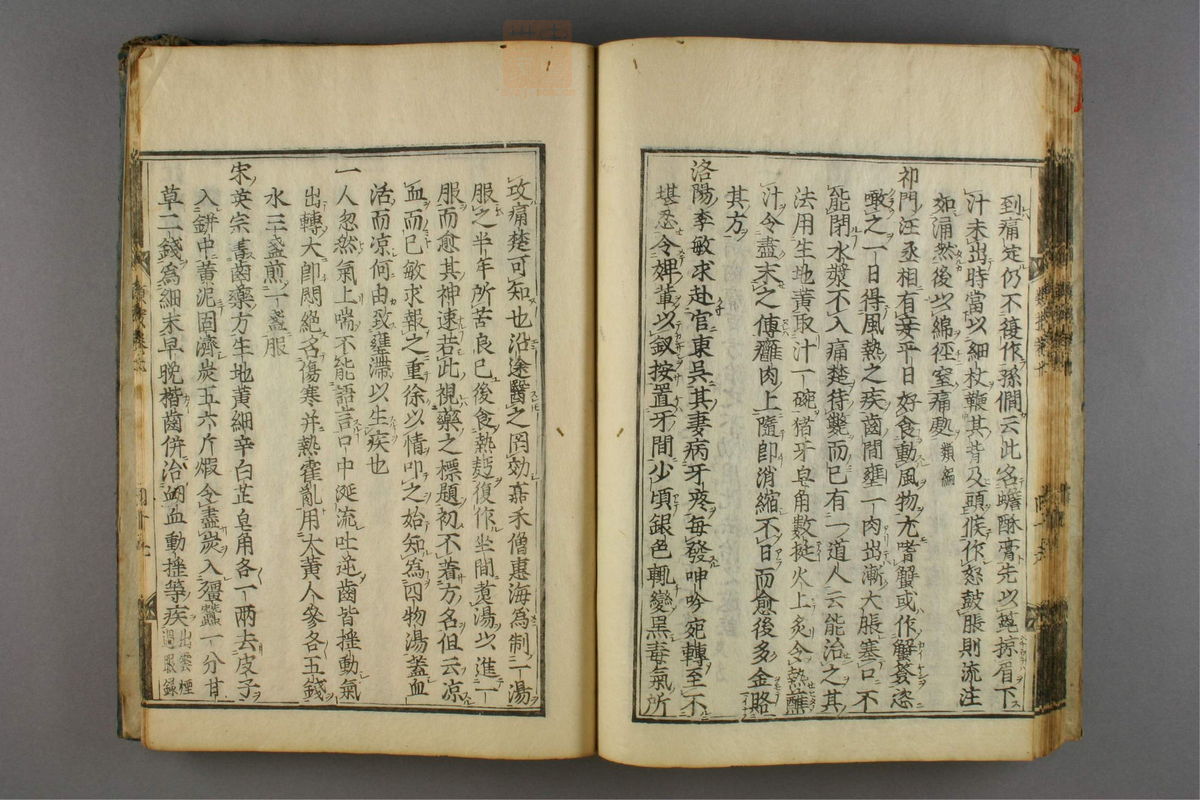 到痛定仍不復作孫僩云此名蟾酥膏先以篦掠眉下
汁未出時當以細杖鞭其背及頭候作怒鼓脹則流注
如涌然後以綿徑窒痛處 類編
祁門汪丞相有妾平日好食動風物尤嗜蟹或作蟹餐恣
噉之一日得風熱之疾齒間壅一肉出漸大脹塞口不
能閉水漿不入痛楚待斃而已有一道人云能治之其
法用生地黄取汁一碗猪牙皂角數挺火上炙令熱蘸
汁令盡末之傅癰肉上隨即消縮不日而愈後多金賂
其方
洛陽李敏求赴官東吳其妻病牙疼每發呻吟宛轉至不
堪忍令婢輩以釵按置牙間少頃銀色輒變黑毒氣所
攻痛楚可知也沿途醫之罔効嘉禾僧惠海為制一湯
服之半年所苦良已後食熱麪復作坐間煮湯以進一
服而愈其神速若此視藥之標題初不著方名但云凉
血而已敏求報之重徐以情叩之始知為四物湯蓋血
活而凉何由致壅滯以生疾也
一人忽然氣上喘不能語言口中涎流吐逆齒皆揺動氣
出轉大即悶絕名傷寒并熱霍亂用大黄人參各五錢
水三盞煎一盞服
宋英宗書齒藥方生地黄細辛白芷皂角各一兩去皮子
入缾中黄泥固濟炭五六斤煆令盡炭入殭蠶一分甘
草二錢為細末早晚楷齒併治衂血動揺等疾 出雲煙
過眼録